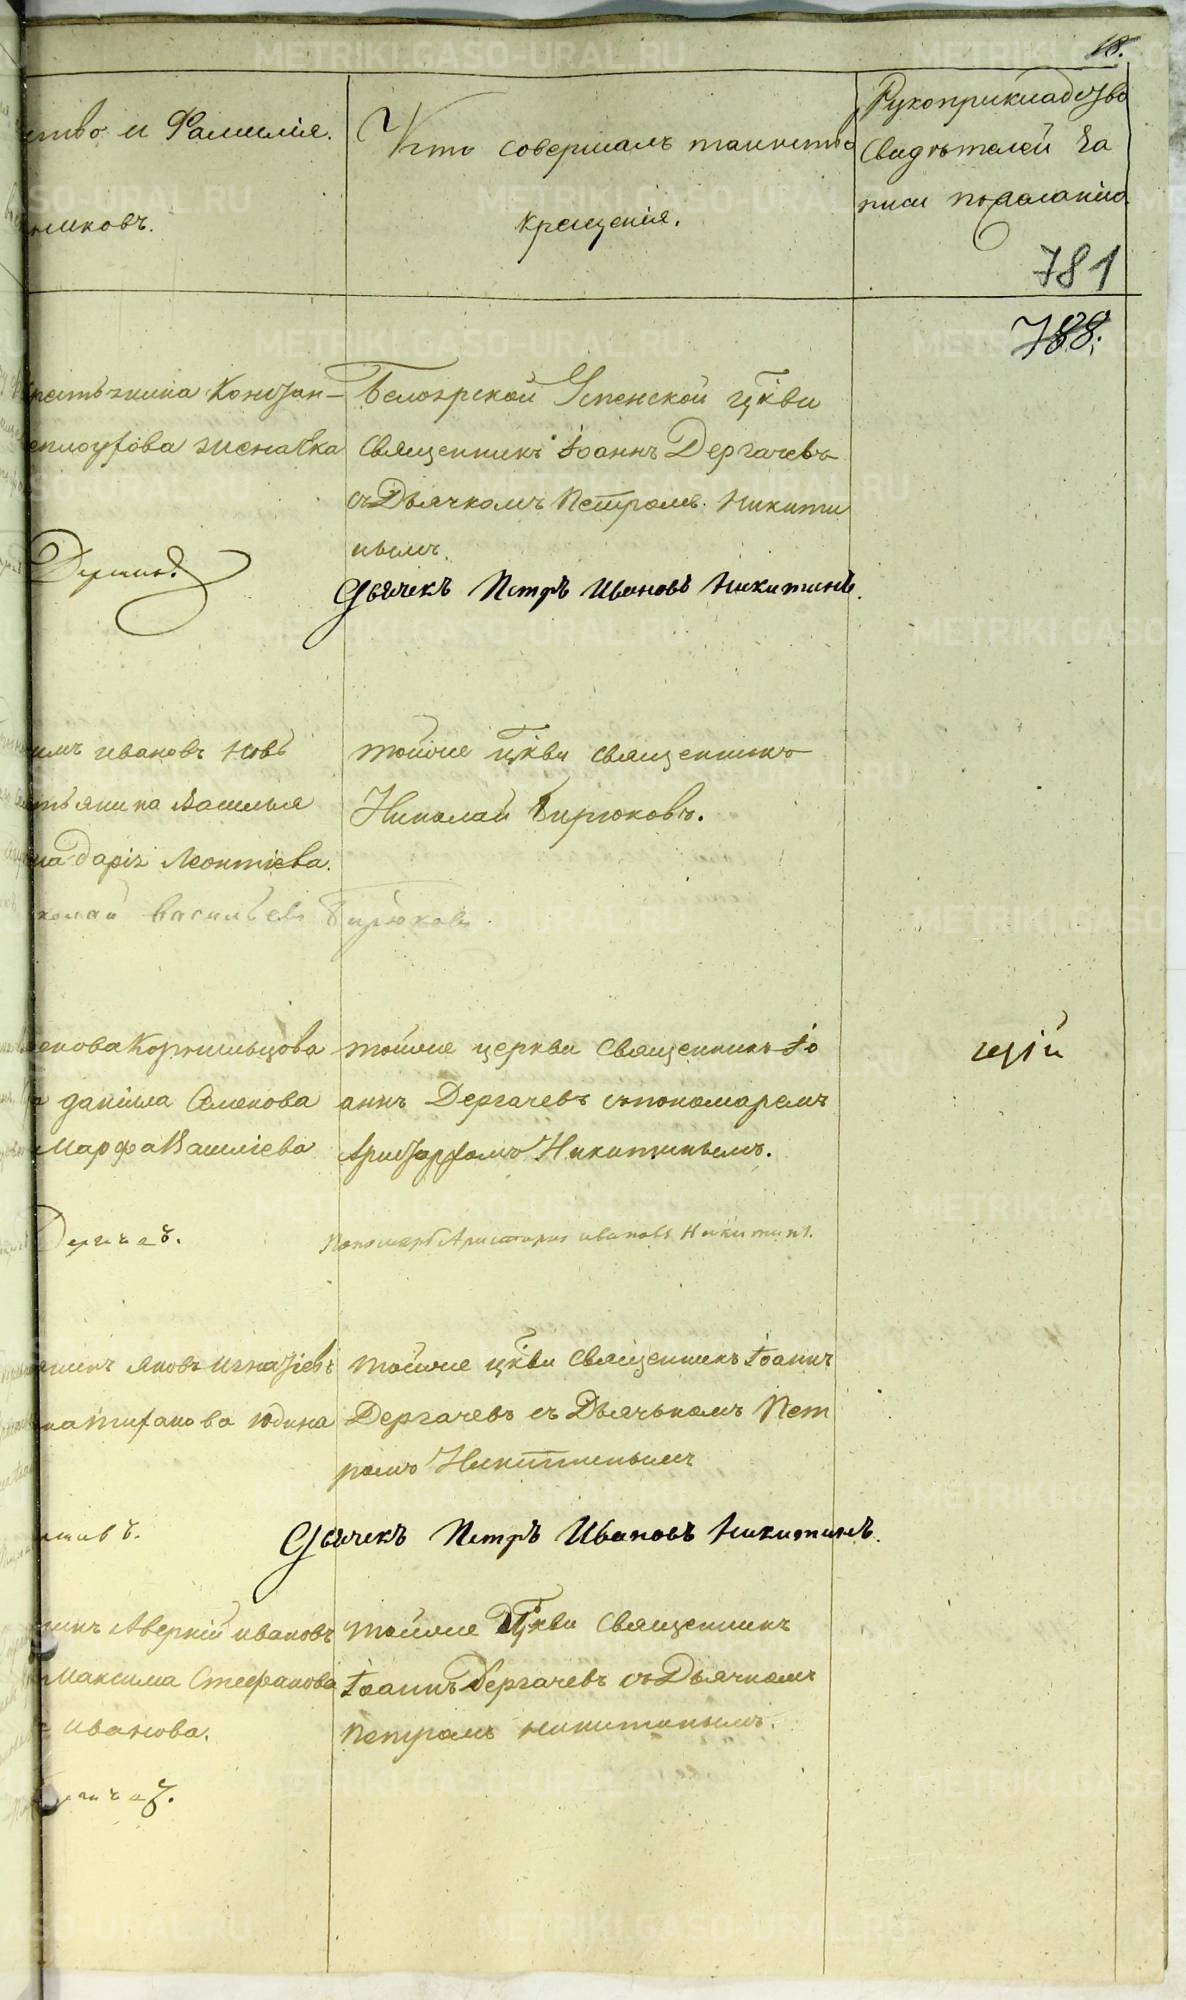 18.
ство и Фамилія.
мниковъ.
Кто совершалъ таинство
крещенія.
Рукоприкладство
свидѣтелей за
писи по желанію.
781
788.
рестьянина Констан-
сплоуфова женачка
Белоярской Успенской цркви
священникъ Іоаннъ Дергачевъ
съ Дьячкомъ Петромъ Никити
нымъ.
Дьячекъ Петръ Ивановъ Никитинъ.
имъ ивановъ новъ
стьянина Василья
на даріа Леонтіева.
колай васильевъ Бирюковъ
тойже цркви священникъ
Николай Бирюковъ.
енова Корюнльцова
даніила Семенова
Марфа Василіева
Дергачевъ.
тойже церкви священникъ Іо
аннъ Дергачевъ съ пономаремъ
Аристархомъ Никитинымъ.
пономарь Аристархъ ивановъ Никитинъ.
ерій
янинъ яковъ игнатіевъ
на тифанова юдина
тойже цркви священникъ Іоаннъ
Дергачевъ съ Дьячькомъ Пет
ромъ Никитинымъ
Дьячекъ Петръ Ивановъ Никитинъ.
нинъ Аверкій ивановъ
Максима Стефанова
иванова.
тойже цркви священникъ
Іоаннъ Дергачевъ съ Дьячкомъ
Петромъ никитинымъ.
METRIKI.GASO-URAL.RU